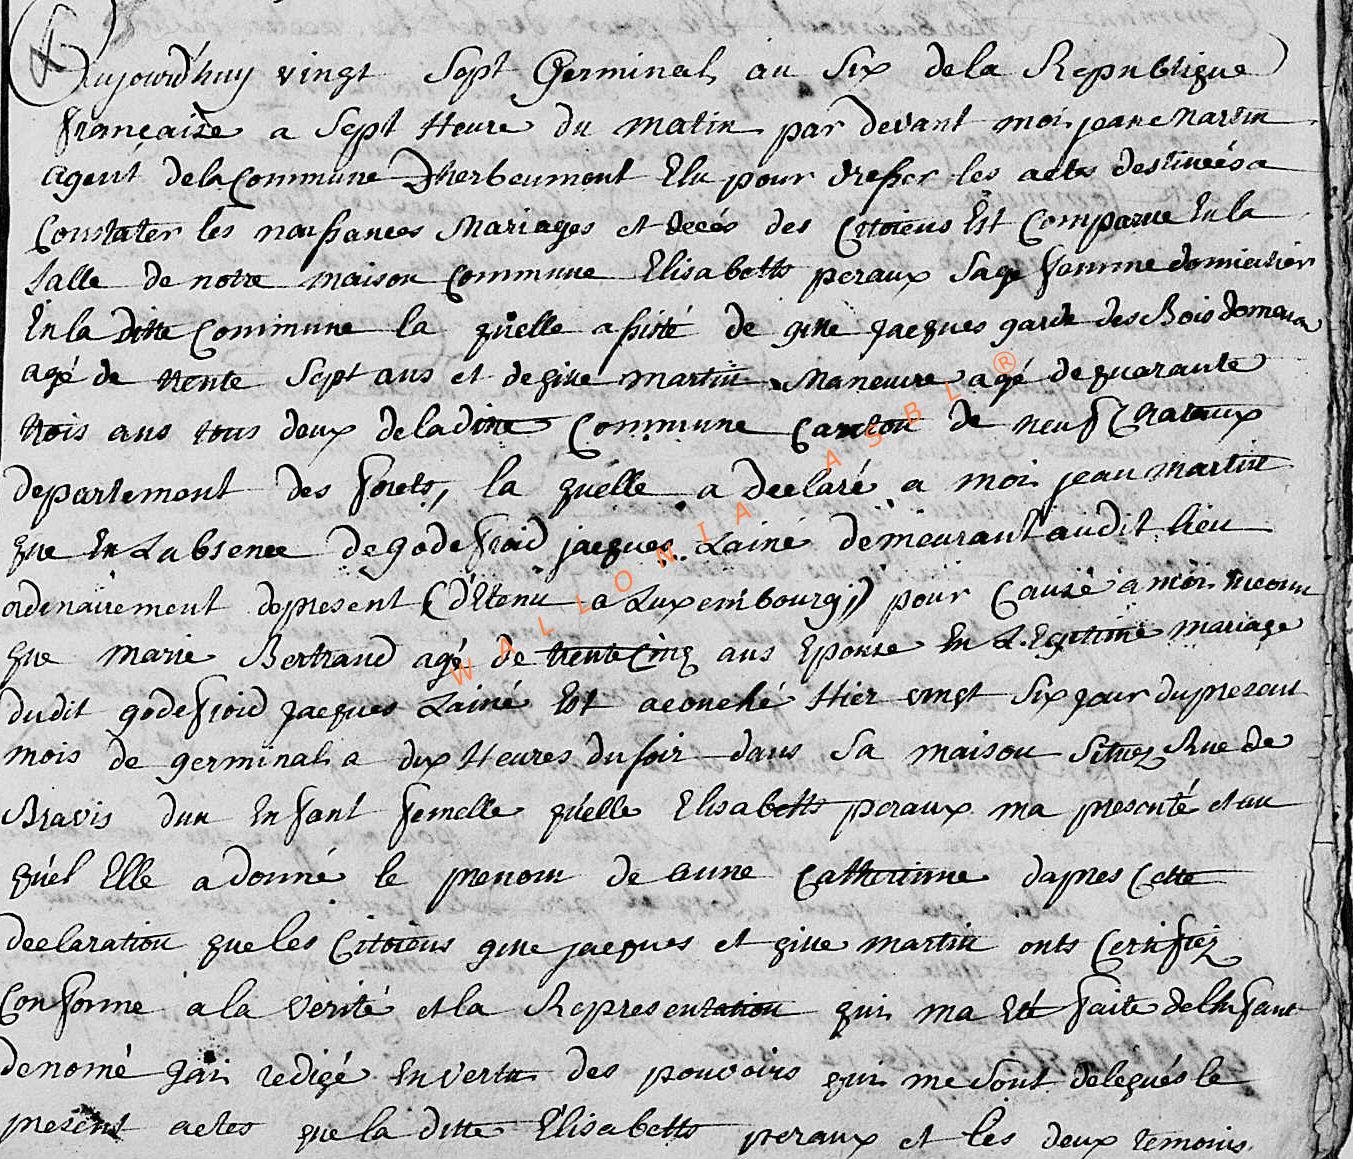 Aujourd'huy vingt Sept Germinal au Six dela Republique
française a Sept Heure du matin par devant moi jean Martin
agent dela Commune Dherbeumont Elu pour dresser les actes destineés a
Constater les naissances Mariages et decés des Citoiens Est Comparue En la
Salle de notre maison Commune Elisabetts peraux Sage femme domicisier
En la ditte Commune la quelle assisté de gille jacques garde des Bois domeura
agé de trente Sept ans et de gille martin Maneuvre agé de quarante
trois ans tous deux deladitte Commune Canton de neufChataux
departement des forets, la quélle a declaré a moi jean martin
que En Labsence de godefroid jacques Lainé demeurant audit lieu
ordinairement depresent (d'Etenu a Luxembourg)) pour Cause a moi inconu
que marie Bertrand agé de trente Cinq ans Epouse En LEgitime mariage
dudit godefroid jacques Lainé Est acouché Hier vingt Six jour du present
mois de germinal a dix Heures du soir dans Sa maison Situez Rue de
Bravis dun Enfant femelle qu'elle Elisabetts peraux ma presenté et au
quél Elle a donné le prenom de anne Catherinne dapres Cette
declaration que les Citoiens gille jacques et gille martin onts Certifiez
Conforme a la verité et la Representation qui ma Eté faite delEnfant
denomé jai redigé En vertu des pouvoirs qui me Sont delegués le
present actes que la ditte Elisabetts peraux et les deux temoins
WALLONIA ASBL ®